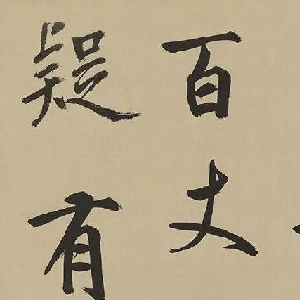 百丈
疑有